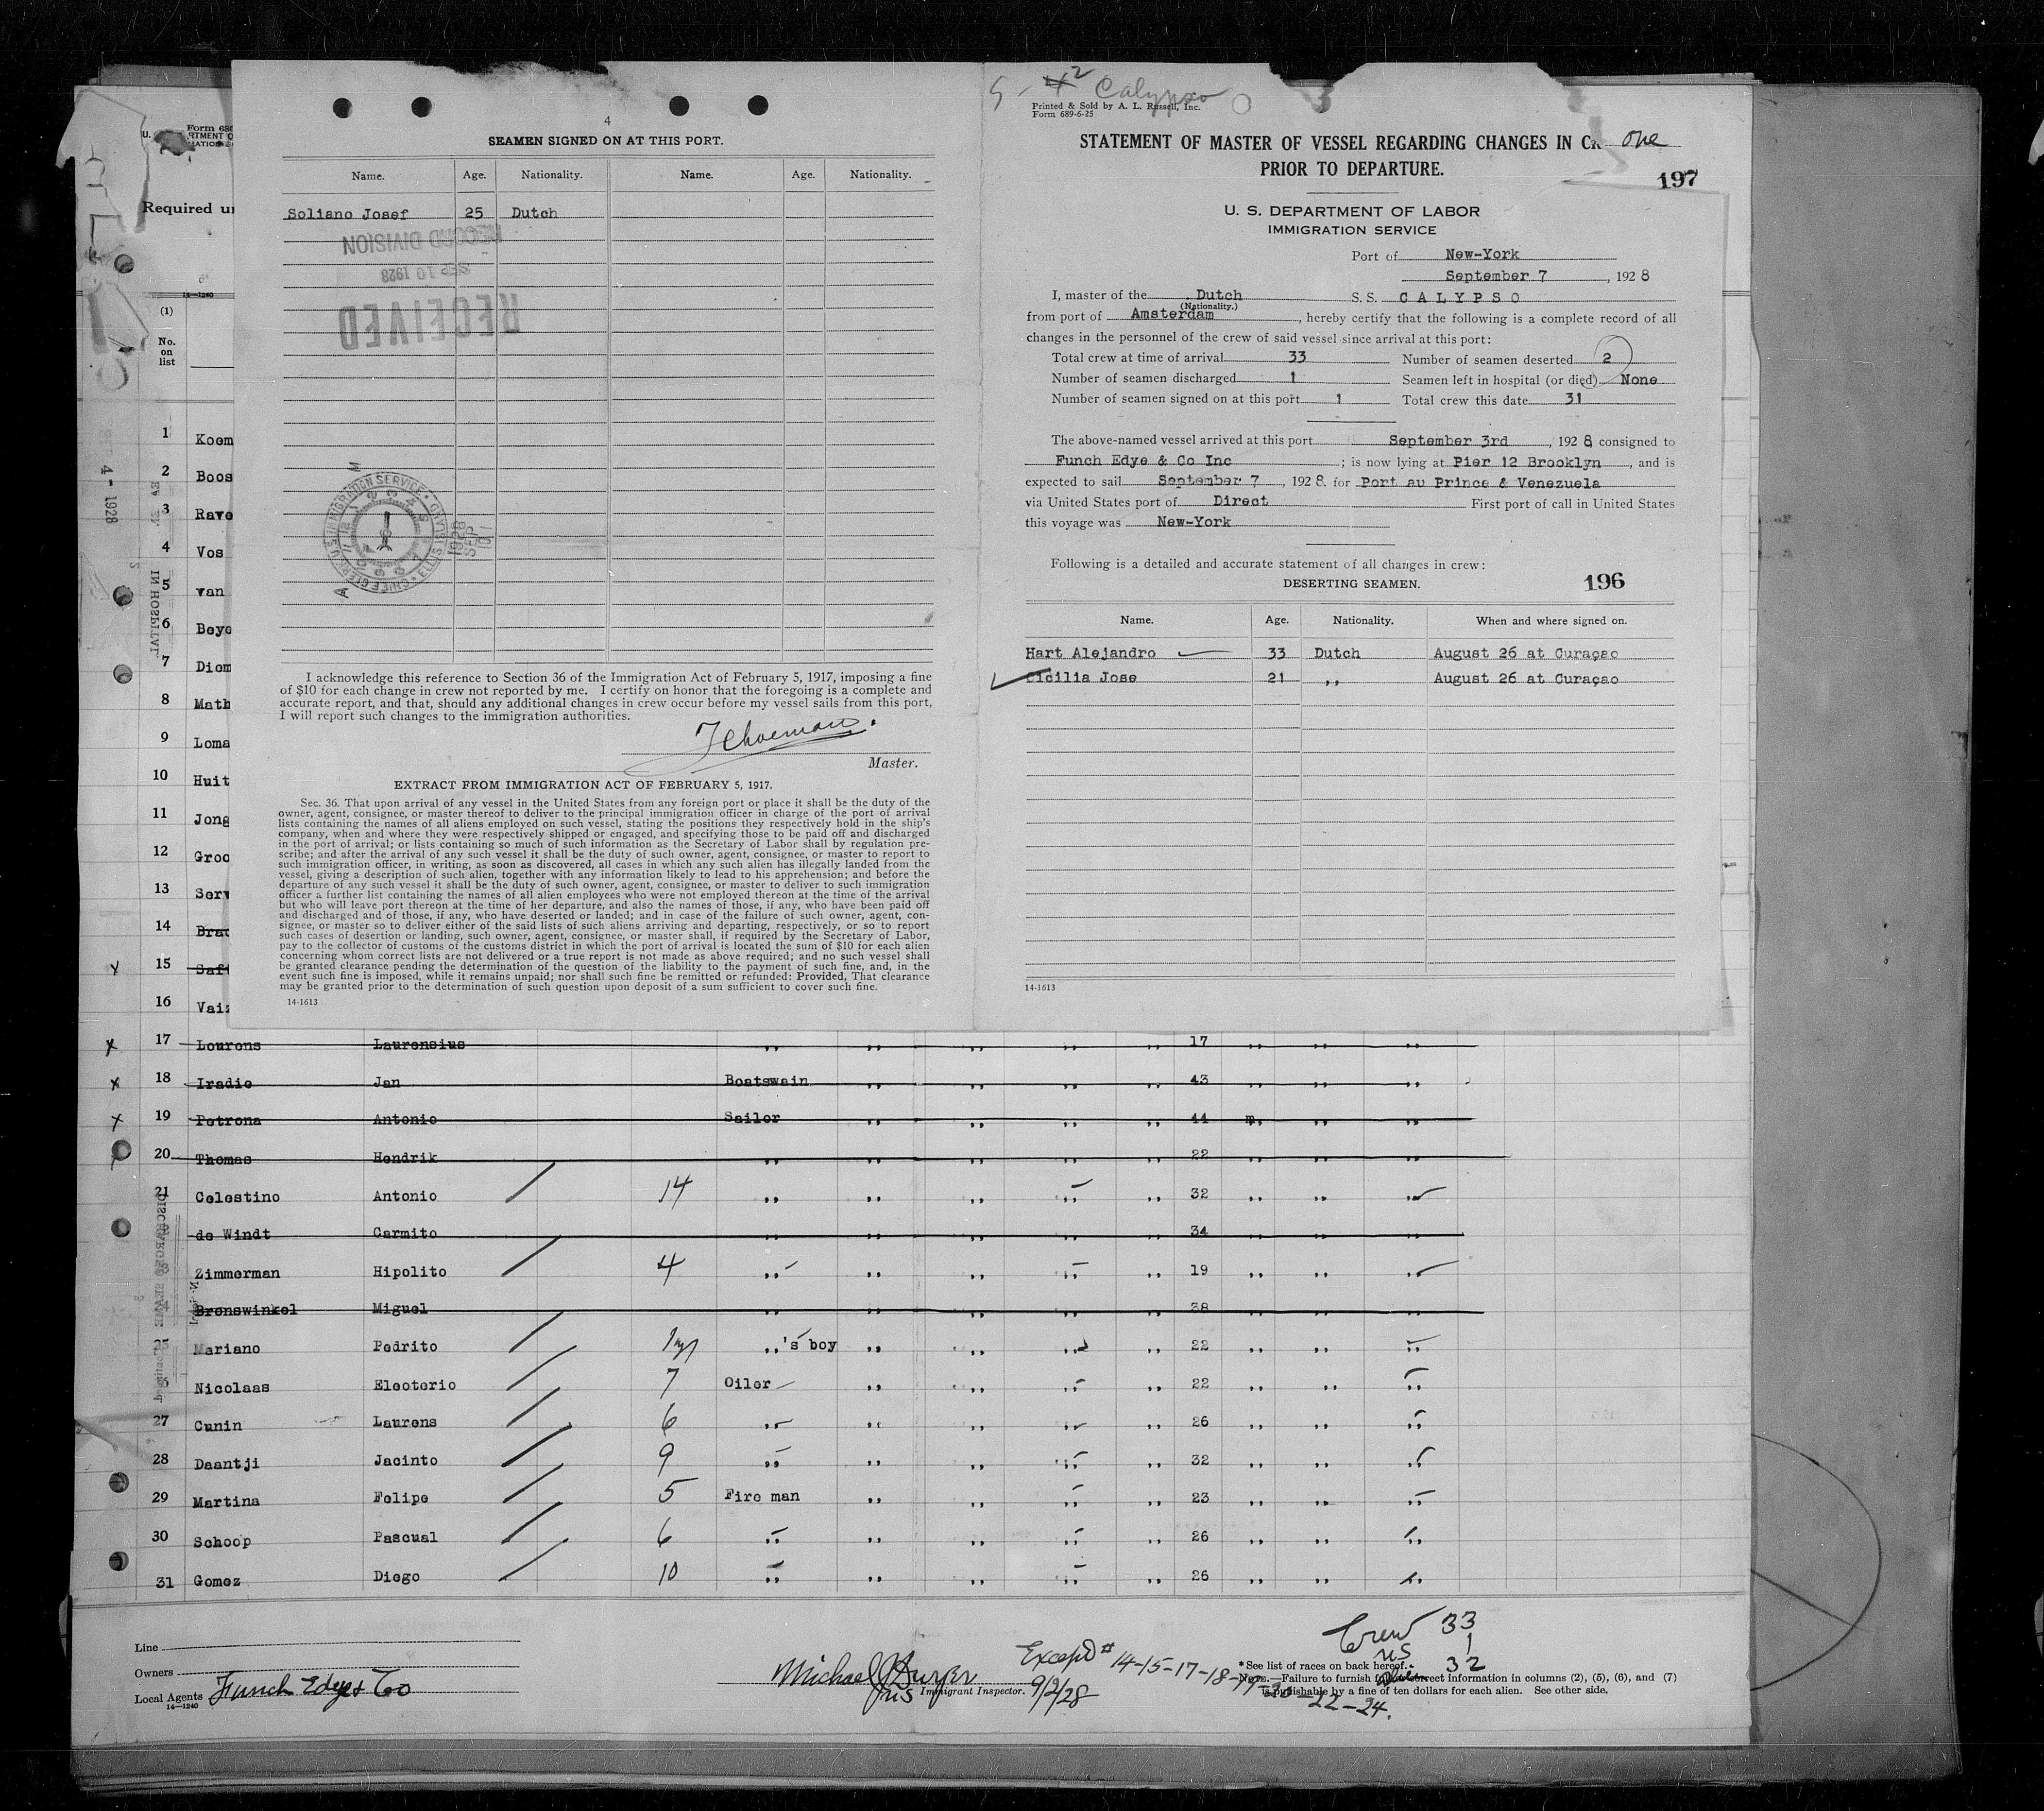 4
SEAMEN SIGNED ON AT THIS PORT.
Name. Age. Nationality. Name. Age. Nationality.
Soliano Josef 25 Dutch
RECORD DIVISION
SEP 10 1928
RECEIVED
I acknowledge this reference to Section 36 of the Immigration Act of February 5, 1917, imposing a fine
of $10 for each change in crew not reported by me. I certify on honor that the foregoing is a complete and
accurate report, and that, should any additional changes in crew occur before my vessel sails from this port,
I will report such changes to the immigration authorities.
Master.
EXTRACT FROM IMMIGRATION ACT OF FEBRUARY 5, 1917.
Sec. 36. That upon arrival of any vessel in the United States from any foreign port or place it shall be the duty of the
owner, agent, consignee, or master thereof to deliver to the principal immigration officer in charge of the port of arrival
lists containing the names of all aliens employed on such vessel, stating the positions they respectively hold in the ship's
company, when and where they were respectively shipped or engaged, and specifying those to be paid off and discharged
in the port of arrival; or lists containing so much of such information as the Secretary of Labor shall by regulation pre-
scribe; and after the arrival of any such vessel it shall be the duty of such owner, agent, consignee, or master to report to
such immigration officer, in writing, as soon as discovered, all cases in which any such alien has illegally landed from the
vessel, giving a description of such alien, together with any information likely to lead to his apprehension; and before the
departure of any such vessel it shall be the duty of such owner, agent, consignee, or master to deliver to such immigration
officer a further list containing the names of all alien employees who were not employed thereon at the time of the arrival
but who will leave port thereon at the time of her departure, and also the names of those, if any, who have been paid off
and discharged and of those, if any, who have deserted or landed; and in case of the failure of such owner, agent, con-
signee, or master so to deliver either of the said lists of such aliens arriving and departing, respectively, or so to report
such cases of desertion or landing, such owner, agent, consignee, or master shall, if required by the Secretary of Labor,
pay to the collector of customs of the customs district in which the port of arrival is located the sum of $10 for each alien
concerning whom correct lists are not delivered or a true report is not made as above required; and no such vessel shall
be granted clearance pending the determination of the question of the liability to the payment of such fine, and, in the
event such fine is imposed, while it remains unpaid; nor shall such fine be remitted or refunded: Provided, That clearance
may be granted prior to the determination of such question upon deposit of a sum sufficient to cover such fine.
14-1613
Calypso
Printed & Sold by A. L. Russell, Inc.
Form 689-6-25
STATEMENT OF MASTER OF VESSEL REGARDING CHANGES IN CR one
PRIOR TO DEPARTURE.
197
U. S. DEPARTMENT OF LABOR
IMMIGRATION SERVICE
Port of New-York
September 7, 1928
I, master of the Dutch S. S. CALYPSO
(Nationality.)
from port of Amsterdam, hereby certify that the following is a complete record of all
changes in the personnel of the crew of said vessel since arrival at this port:
Total crew at time of arrival 33 Number of seamen deserted 2
Number of seamen discharged 1 Seamen left in hospital (or died) None
Number of seamen signed on at this port 1 Total crew this date 31
The above-named vessel arrived at this port September 3rd, 1928 consigned to
Funch Edye & Co Inc; is now lying at Pier 12 Brooklyn, and is
expected to sail September 7, 1928. for Port au Prince & Venezuela
via United States port of Direct First port of call in United States
this voyage was New-York
Following is a detailed and accurate statement of all changes in crew:
DESERTING SEAMEN. 196
Name. Age. Nationality. When and where signed on.
Hart Alejandro 33 Dutch August 26 at Curaçao
Cicilia Jose 21 ,, August 26 at Curaçao
14-1613
Form 680
Required un
14-1240
(1)
No.
on
list
4 - 1928
IN HOSPITAL
1 Koem
2 Boos
3 Rave
4 Vos
5 van
6 Beye
7 Diom
8 Math
9 Loma
10 Huit
11 Jong
12 Groo
13 Serv
14 Brad
15 Saft
16 Vaiz
17 Lourens Laurensius ,, ,, ,, ,, ,, 17 ,, ,, ,,
18 Iradie Jan Boatswain ,, ,, ,, ,, 43 ,, ,, ,,
19 Petrona Antonio Sailor ,, ,, ,, ,, 44 m. ,, ,,
20 Thomas Hendrik ,, ,, ,, ,, ,, 22 ,, ,, ,,
21 Celestino Antonio 14 ,, ,, ,, ,, ,, 32 ,, ,, ,,
de Windt Carmito ,, ,, ,, ,, ,, 34 ,, ,, ,,
3 Zimmerman Hipolito 4 ,, ,, ,, ,, ,, 19 ,, ,, ,,
4 Bronswinkel Miguel ,, ,, ,, ,, ,, 38 ,, ,, ,,
25 Mariano Pedrito ,,'s boy ,, ,, ,, ,, 22 ,, ,, ,,
6 Nicolaas Eleoterio 7 Oiler ,, ,, ,, ,, 22 ,, ,, ,,
27 Cunin Laurens 6 ,, ,, ,, ,, ,, 26 ,, ,, ,,
28 Daantji Jacinto 9 ,, ,, ,, ,, ,, 32 ,, ,, ,,
29 Martina Felipe 5 Fire man ,, ,, ,, ,, 23 ,, ,, ,,
30 Schoop Pascual 6 ,, ,, ,, ,, ,, 26 ,, ,, ,,
31 Gomez Diego 10 ,, ,, ,, ,, ,, 26 ,, ,, ,,
Line
Owners
Local Agents Funch Edye & Co
14-1240
Michael J
Immigrant Inspector.
Except # 14-15-17-18-19-20-22-24.
9/2/28
Crew 33
US 1
32
*See list of races on back hereof.
NOTE.—Failure to furnish correct information in columns (2), (5), (6), and (7)
is punishable by a fine of ten dollars for each alien. See other side.